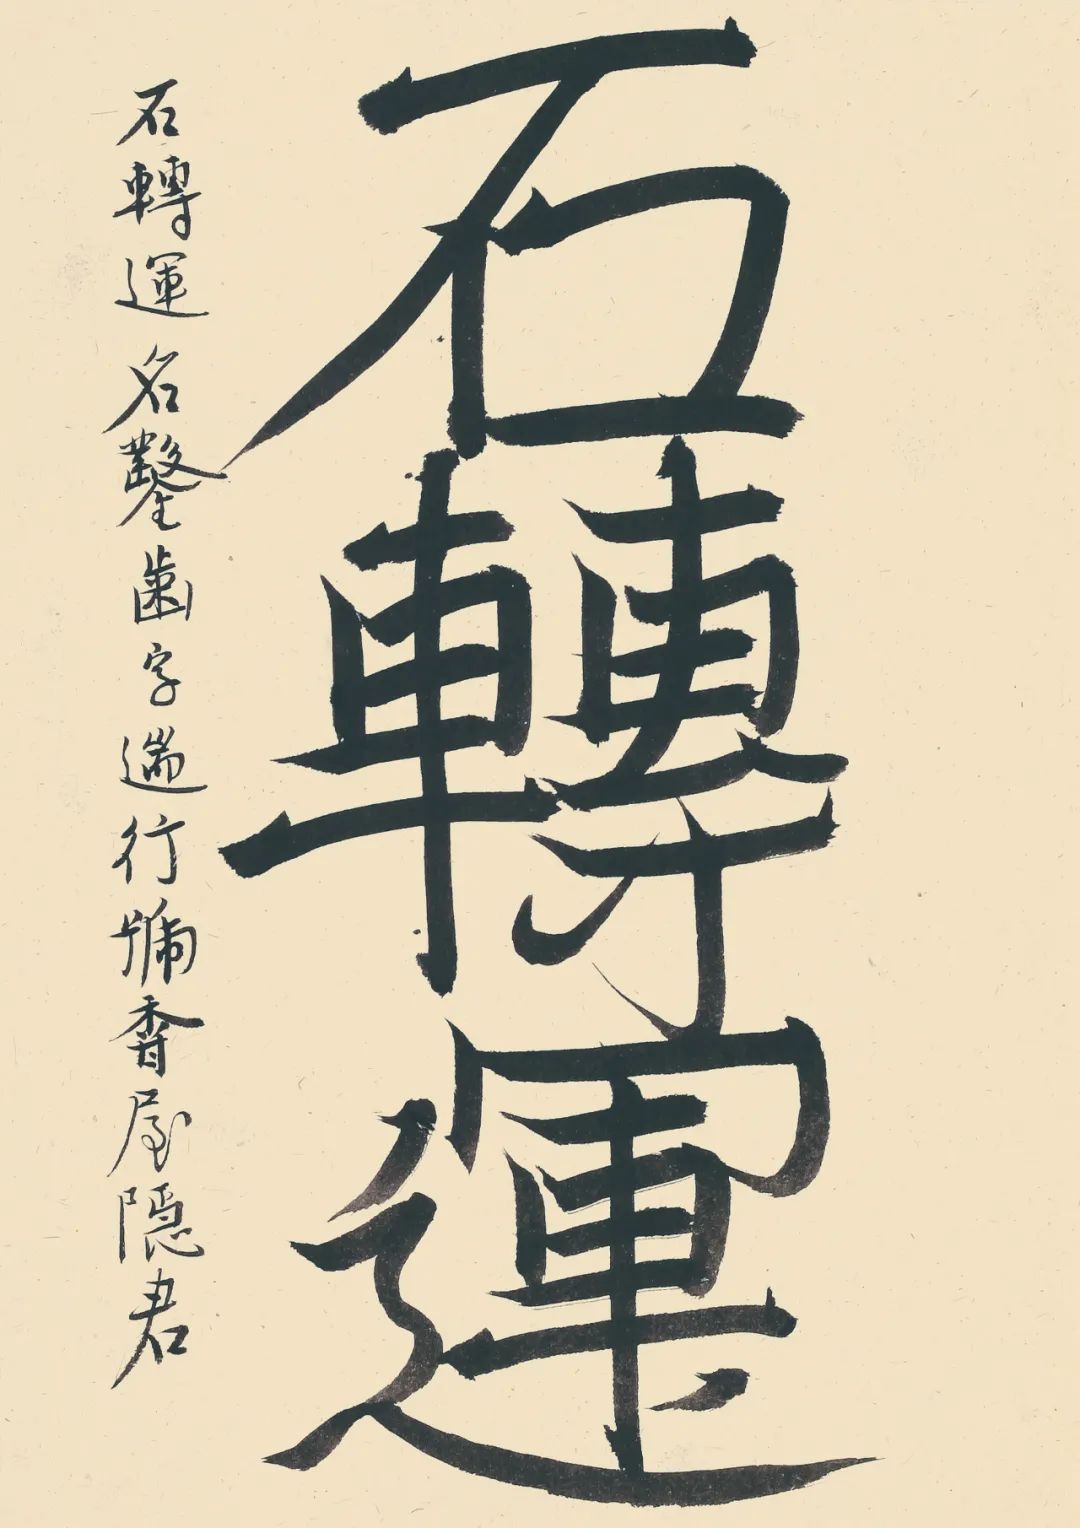 石轉運
石轉運名鑿齒字遄行號香屋隱君